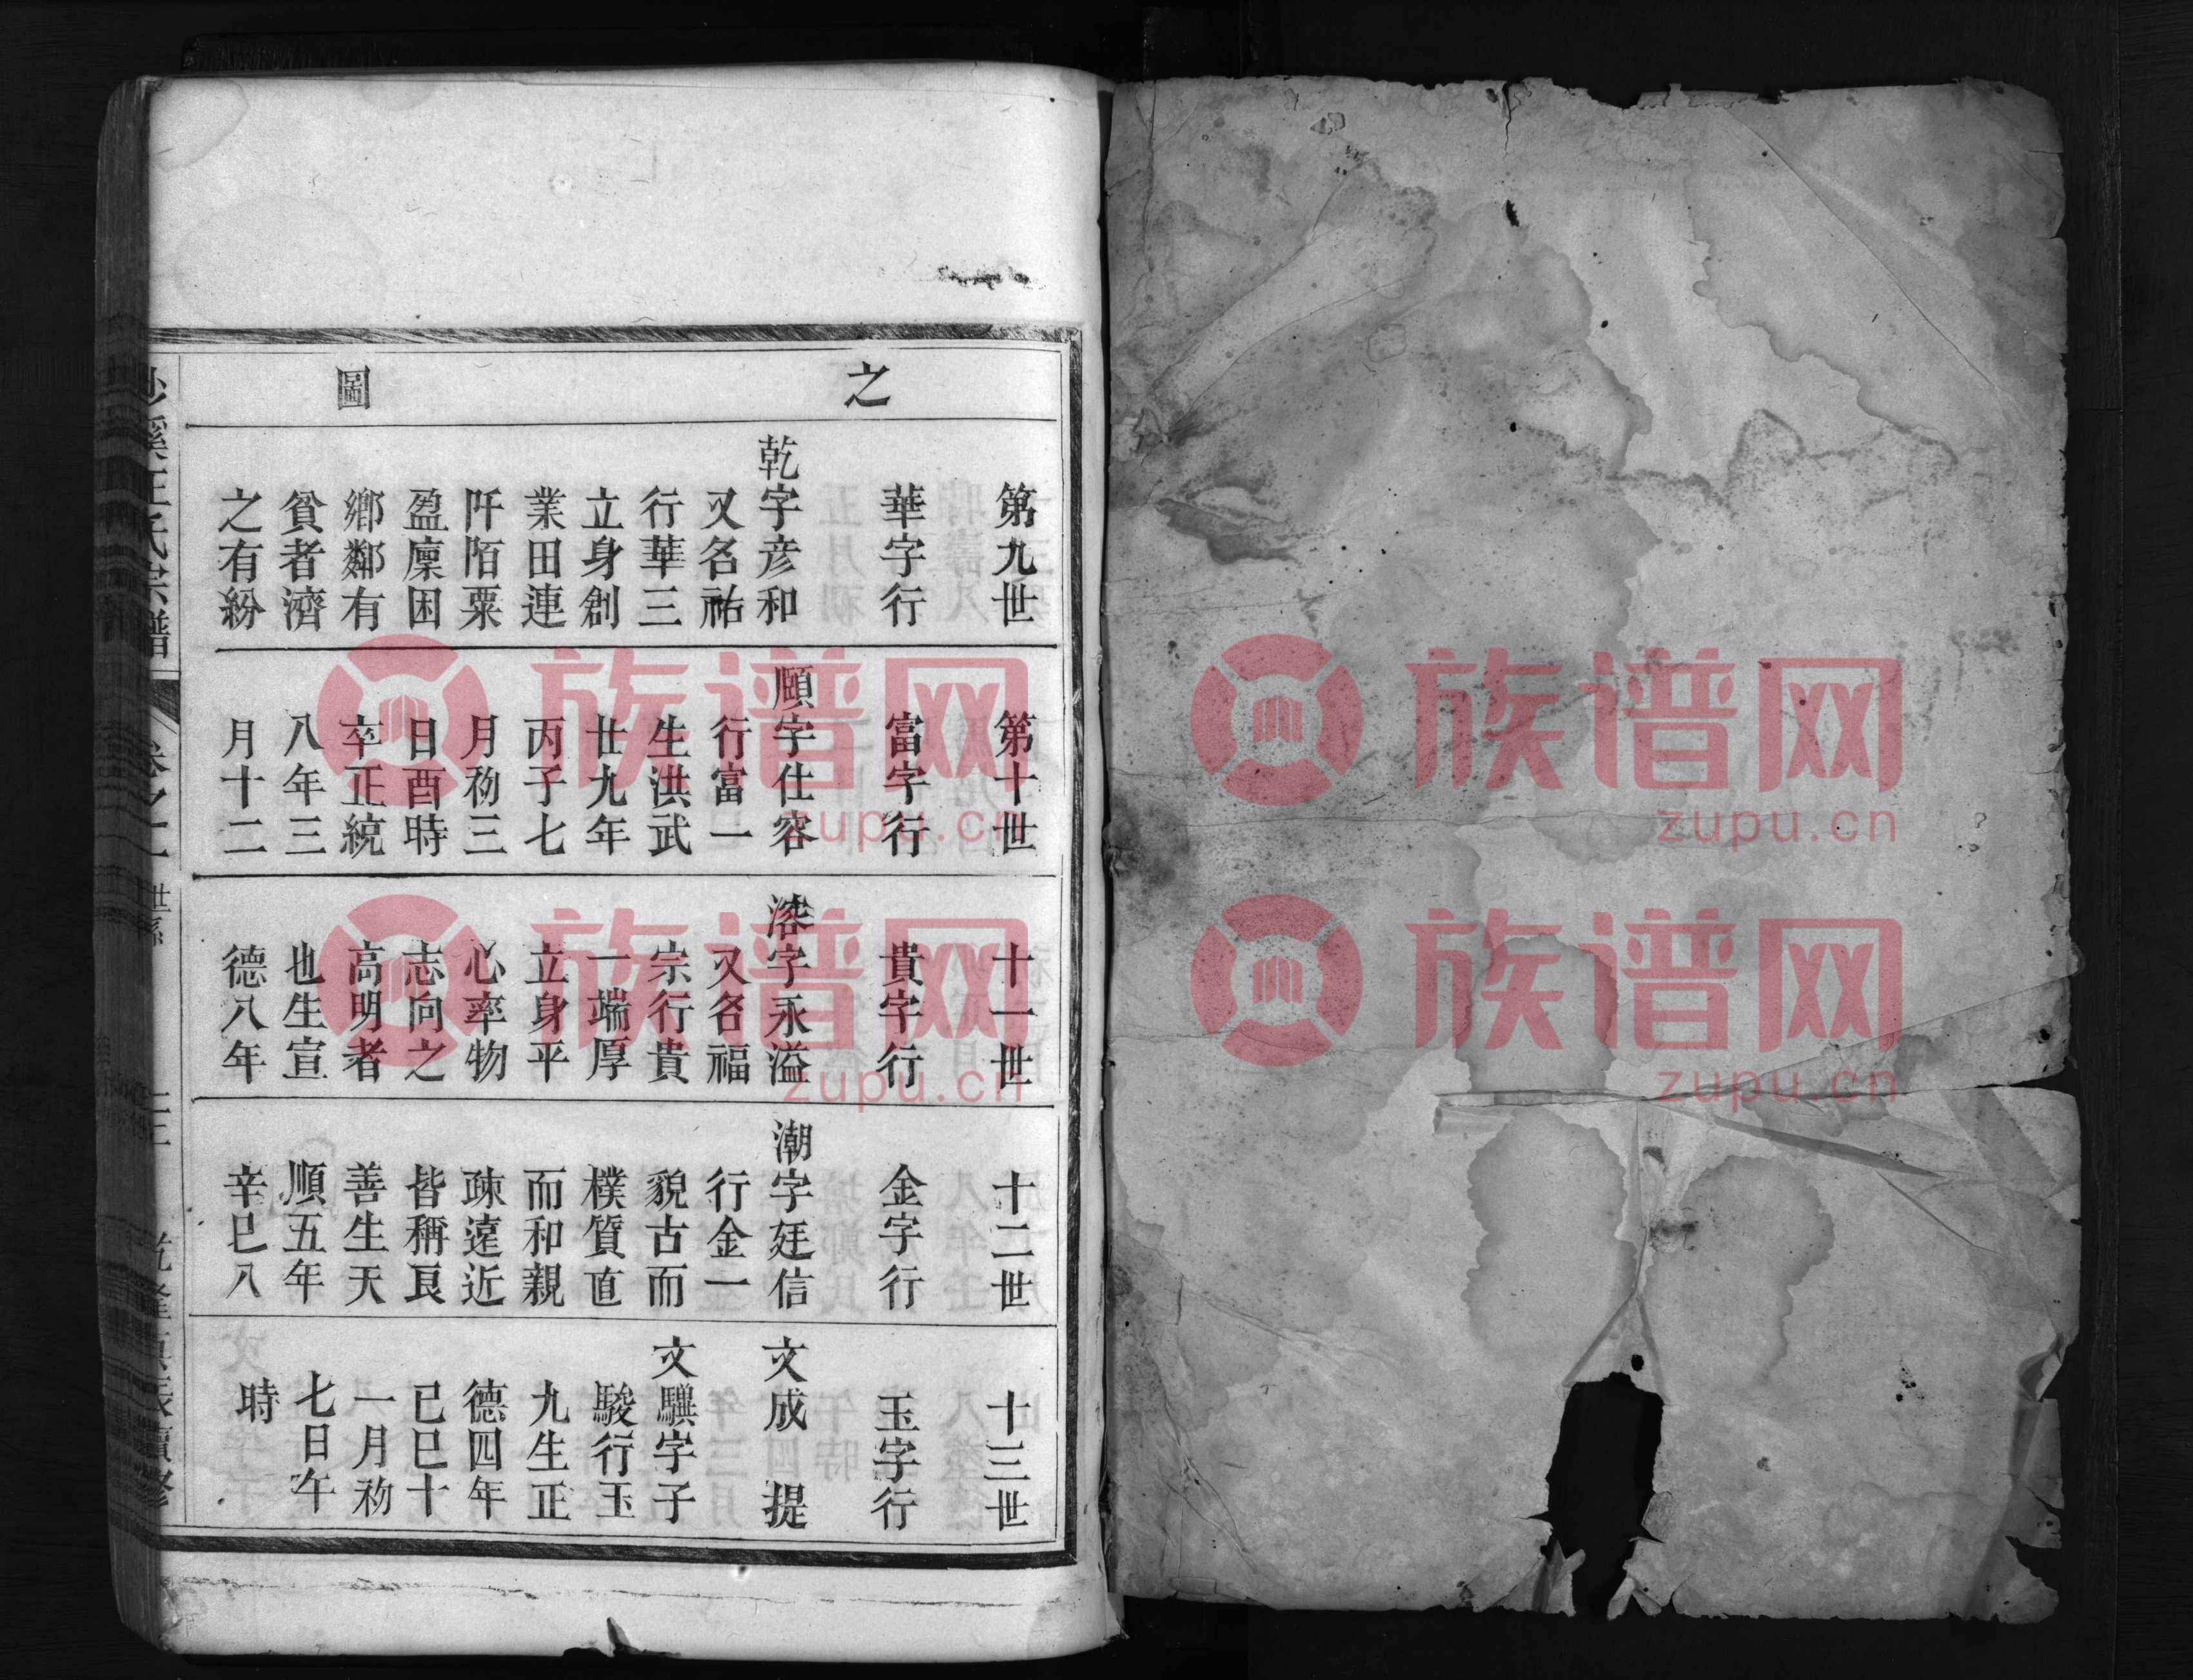 之
圖
第九世
華字行
乾字彦和
又名祐
行華三
立身創
業田連
阡陌粟
盈廩困
鄉鄰有
貧者濟
之有紛
第十世
富字行
頤字仕容
行富一
生洪武
廿九年
丙子七
月初三
日酉時
卒正統
八年三
月十二
十一世
貴字行
溶字永溢
又名福
宗行貴
一端厚
立身平
心率物
志向之
高明者
也生宣
德八年
十二世
金字行
潮字廷信
行金一
貌古而
樸質直
而和親
疎遠近
皆稱良
善生天
順五年
辛巳八
十三世
玉字行
文成 提
文驥字子
駿行玉
九生正
德四年
己巳十
一月初
七日午
時
王氏宗譜
卷之二
世系
族谱网
zupu.cn
族谱网
zupu.cn
族谱网
zupu.cn
族谱网
zupu.cn